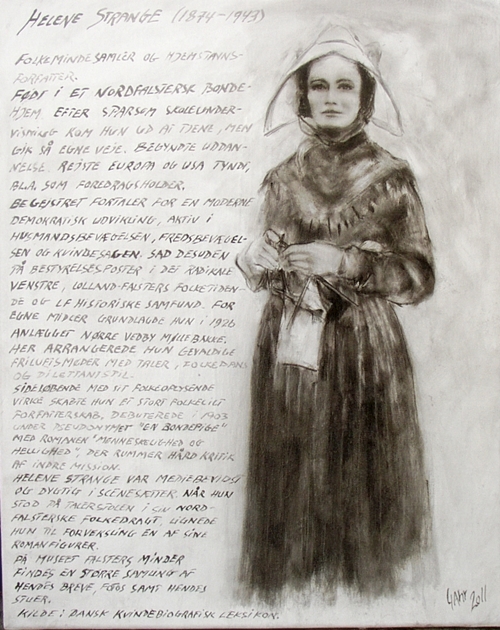 HELENE STRANGE (1874-1943)
FOLKEMINDESAMLER OG HJEMSTAVNS-
FORFATTER.
FØDT I ET NORDFALSTERSK BONDE-
HJEM EFTER SPARSOM SKOLEUNDER-
VISNING KOM HUN UD AT TJENE, MEN
GIK SÅ EGNE VEJE. BEGYNDTE UDDAN-
NELSE. REJSTE EUROPA OG USA TYNDT,
BL.A. SOM FOREDRAGSHOLDER.
BEGEJSTRET FORTALER FOR EN MODERNE
DEMOKRATISK UDVIKLING, AKTIV I
HUSMANDSBEVÆGELSEN, FREDSBEVÆGEL-
SEN OG KVINDESAGEN. SAD DESUDEN
PÅ BESTYRELSESPOSTER I DET RADIKALE
VENSTRE, LOLLAND-FALSTERS FOLKETIDEN-
DE OG LF HISTORISKE SAMFUND. FOR
EGNE MIDLER GRUNDLAGDE HUN I 1926
ANLÆGGET NØRRE VEDBY MØLLEBAKKE.
HER ARRANGEREDE HUN GEVALDIGE
FRILUFTSMØDER MED TALER, FOLKEDANS
OG DILETTANTSTIL.
SIDELØBENDE MED SIT FOLKEOPLYSENDE
VIRKE SKABTE HUN ET STORT FOLKELIGT
FORFATTERSKAB, DEBUTEREDE I 1903
UNDER PSEUDONYMET "EN BONDEPIGE"
MED ROMANEN "MENNESKELIGHED OG
HELLIGHED", DER RUMMER HÅRD KRITIK
AF INDRE MISSION.
HELENE STRANGE VAR MEDIEBEVIDST
OG DYGTIG I SCENESÆTTER. NÅR HUN
STOD PÅ TALERSTOLEN I SIN NORD-
FALSTERSKE FOLKEDRAGT, LIGNEDE
HUN TIL FORVEKSLING EN AF SINE
ROMANFIGURER.
PÅ MUSEET FALSTERS MINDER
FINDES EN STØRRE SAMLING AF
HENDES BREVE, FOTOS SAMT HENDES
STUER.
KILDE: DANSK KVINDEBIOGRAFISK LEKSIKON.
2011